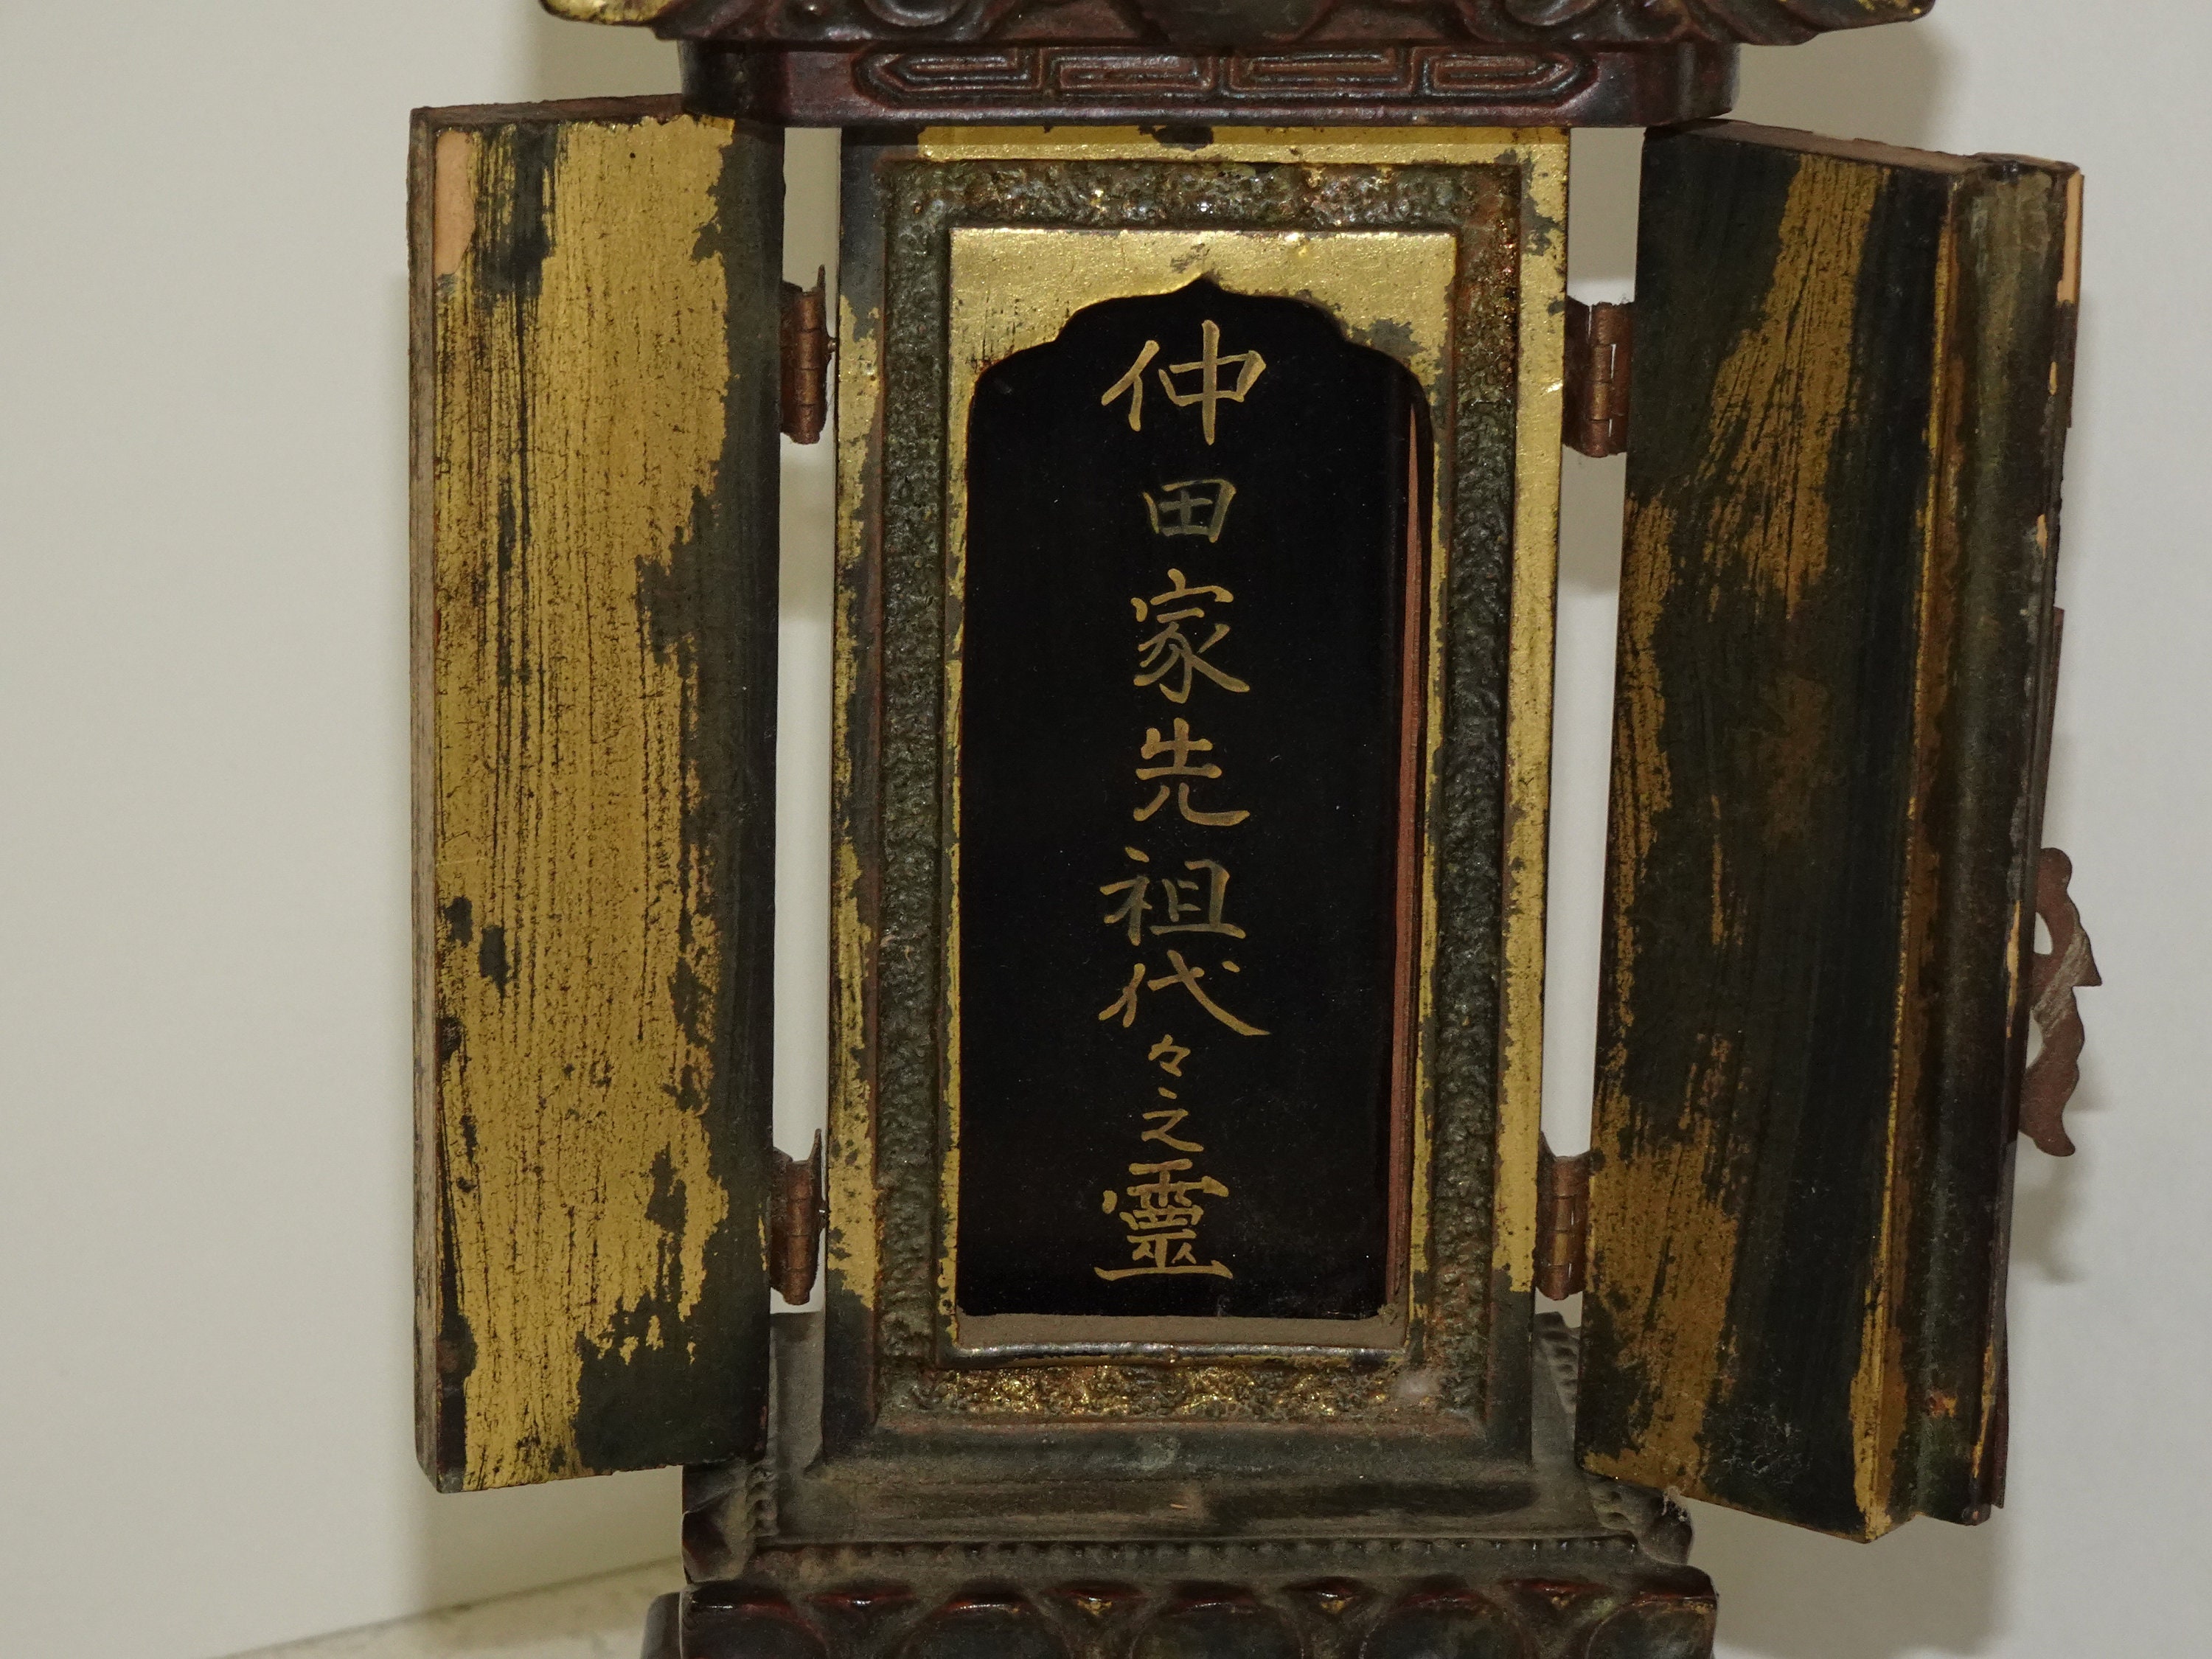 仲田家先祖代々之霊